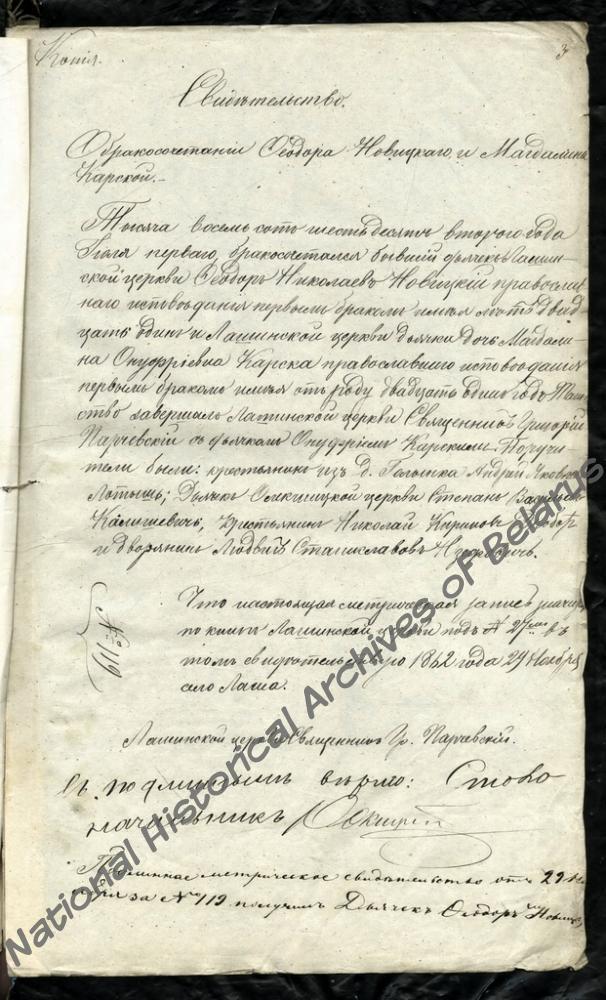 Копія.
3
Свидѣтельство.
О бракосочетаніи Ѳеодора Новицкаго и Магдалины
Карской.—
Тысяча восемь сотъ шестьдесятъ второго года
Іюля перваго, бракосочетался бывшій дьячекъ Лашин-
ской церкви Ѳеодоръ Николаевъ Новицкій православ-
наго исповѣданія первымъ бракомъ имѣя лѣтъ двад-
цать одинъ и Лашинской церкви дьячка дочь Магдали-
на Онуфріевна Карска православнаго исповѣданія
первымъ бракомъ имѣя отъ роду двадцать одинъ годъ. Таин-
ство совершилъ Лашинской церкви Священникъ Григорій
Парчевскій съ дьячкомъ Онуфріемъ Карскимъ. Поручи-
тели были: крестьянинъ изъ д. Андрей Яковлевъ
Лотышъ, Дьячекъ церкви Степанъ
Калишевичъ, Крестьянинъ Николай
и дворянинъ Людвигъ Станиславовъ
Что настоящая метрическая запись значится
по книгѣ Лашинской церкви подъ № 27 въ
томъ свидѣтельствую 1862 года 29 Ноября
село Лаша.
№ 119
Лашинской церкви Священникъ Гр. Парчевскій.
Съ подлиннымъ вѣрно: Столо
начальникъ
Подлинное метрическое свидѣтельство отъ 29 Но-
ября за № 119 получилъ Дьячекъ Ѳеодоръ Новицкій
National Historical Archives of Belarus